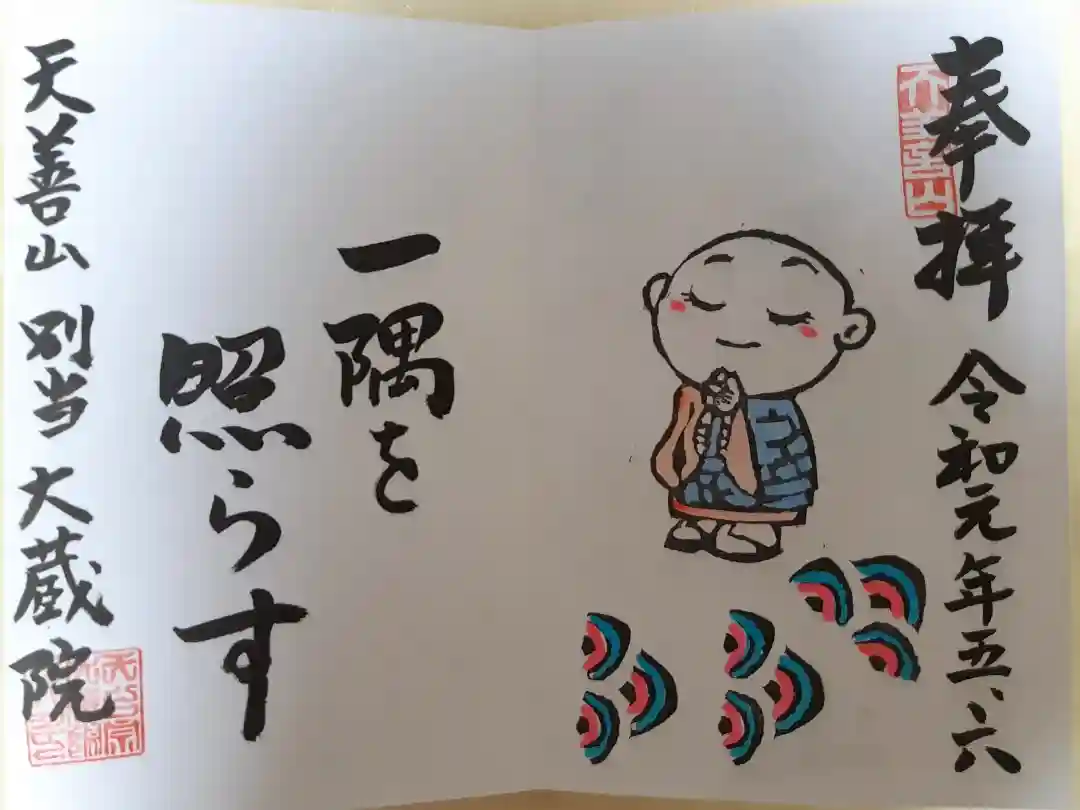 奉拝 令和元年五、六
一隅を
照らす
天善山 別当 大蔵院